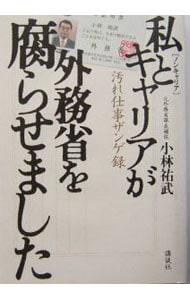 「ノンキャリア」
私とキャリアが
外務省を
腐らせました
汚れ仕事ザンゲ録
元外務省課長補佐 小林祐武
講談社